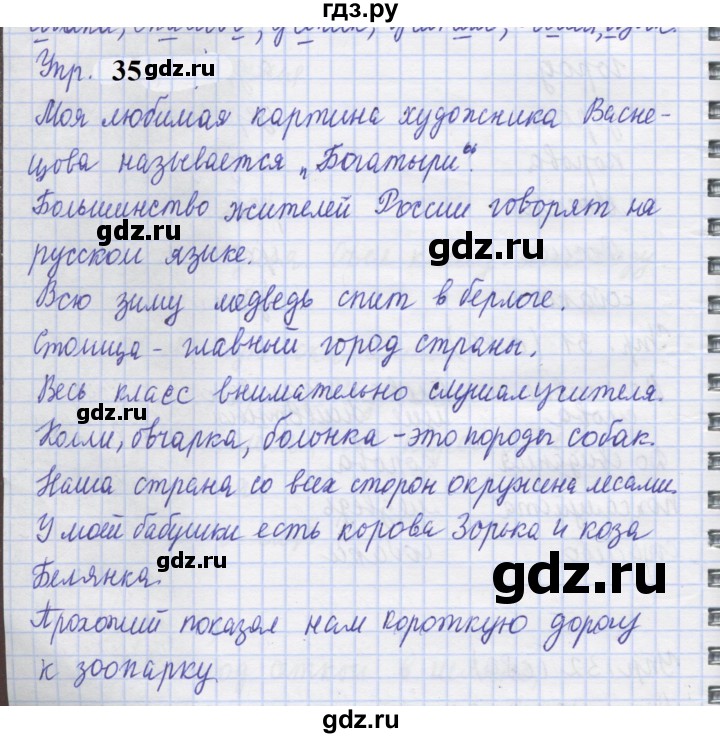 гдз.ру
Упр. 35
Моя любимая картина художника Васне-
цова называется „Богатыри“.
Большинство жителей России говорят на
gdz.ru gdz.ru
русском языке.
Всю зиму медведь спит в берлоге.
Столица - главный город страны.
Весь класс внимательно слушал учителя.
gdz.ru
Колли, овчарка, болонка - это породы собак.
Наша страна со всех сторон окружена лесами.
У моей бабушки есть корова Зорька и коза
Белянка.
gdz.ru gdz.ru
Прохожий показал нам короткую дорогу
к зоопарку
gdz.ru
gdz.ru